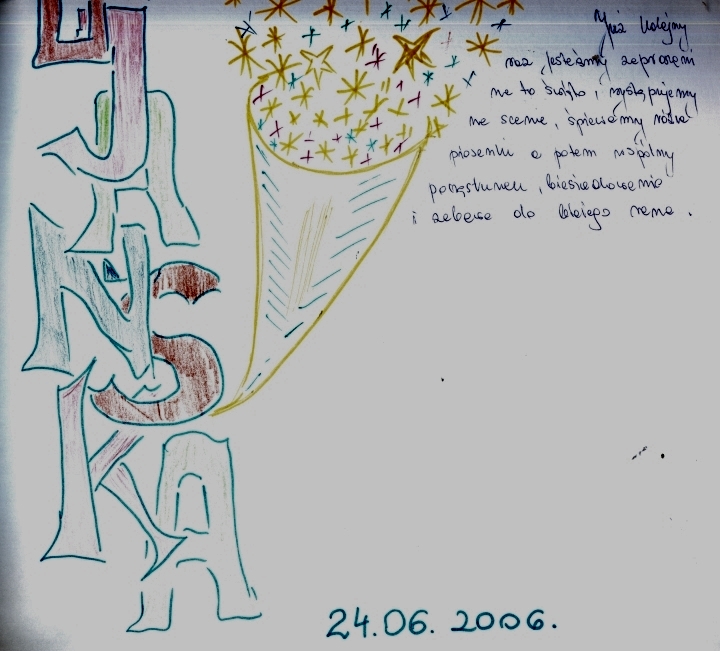 Już kolejny
raz jesteśmy zaproszeni
na to święto i występujemy
na scenie, śpiewamy różne
piosenki a potem wspólny
poczęstunek, biesiadowanie
i zabawa do białego rana.
J
A
Ń
S
K
A
24.06.2006.